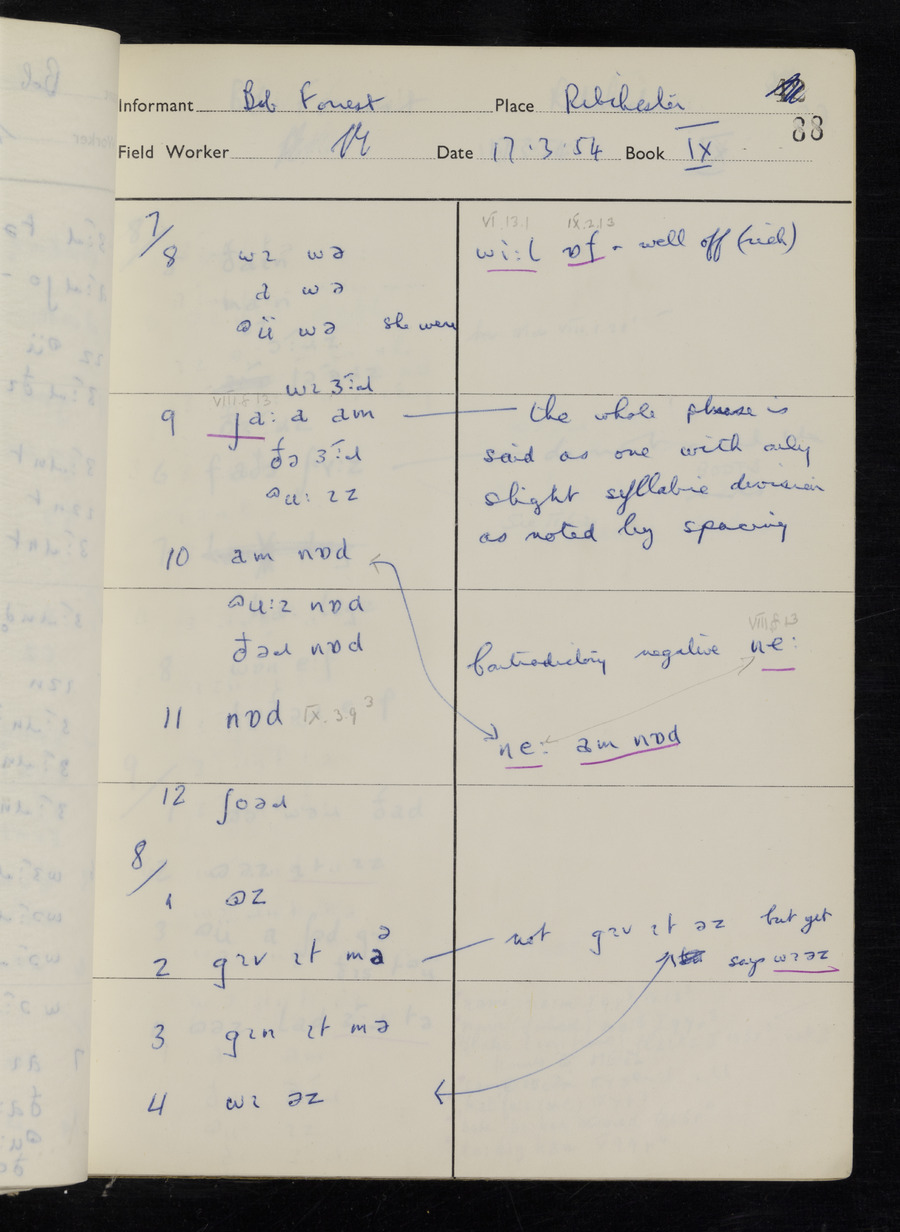 Informant Bob Forrest Place Ribchester
88
Field Worker Date 17.3.54 Book IX
7/8 wɪ wə
wi:l ɒf - well off (rich)
VI.13.1 IX.2.13
a wə
ʊu wə she were
wɪ ɜ:ɹd
9 ja: a am
VIII.8.13
the whole phrase is
ðə ɜ:ɹd
said as one with only
slight syllabic division
as noted by spacing
10 am nɒd
nɒd
ðəɹ nɒd
Contradictory negative ne:
VIII.8.13
11 nɒd IX.3.9³
ne: am nɒd
12 ʃoəɹ
8/
1 əz
2 gɪv ɪt mə
ə
not gɪv ɪt əz but yet
says wɪ əz
3 gɪn ɪt mə
4 wɪ əz